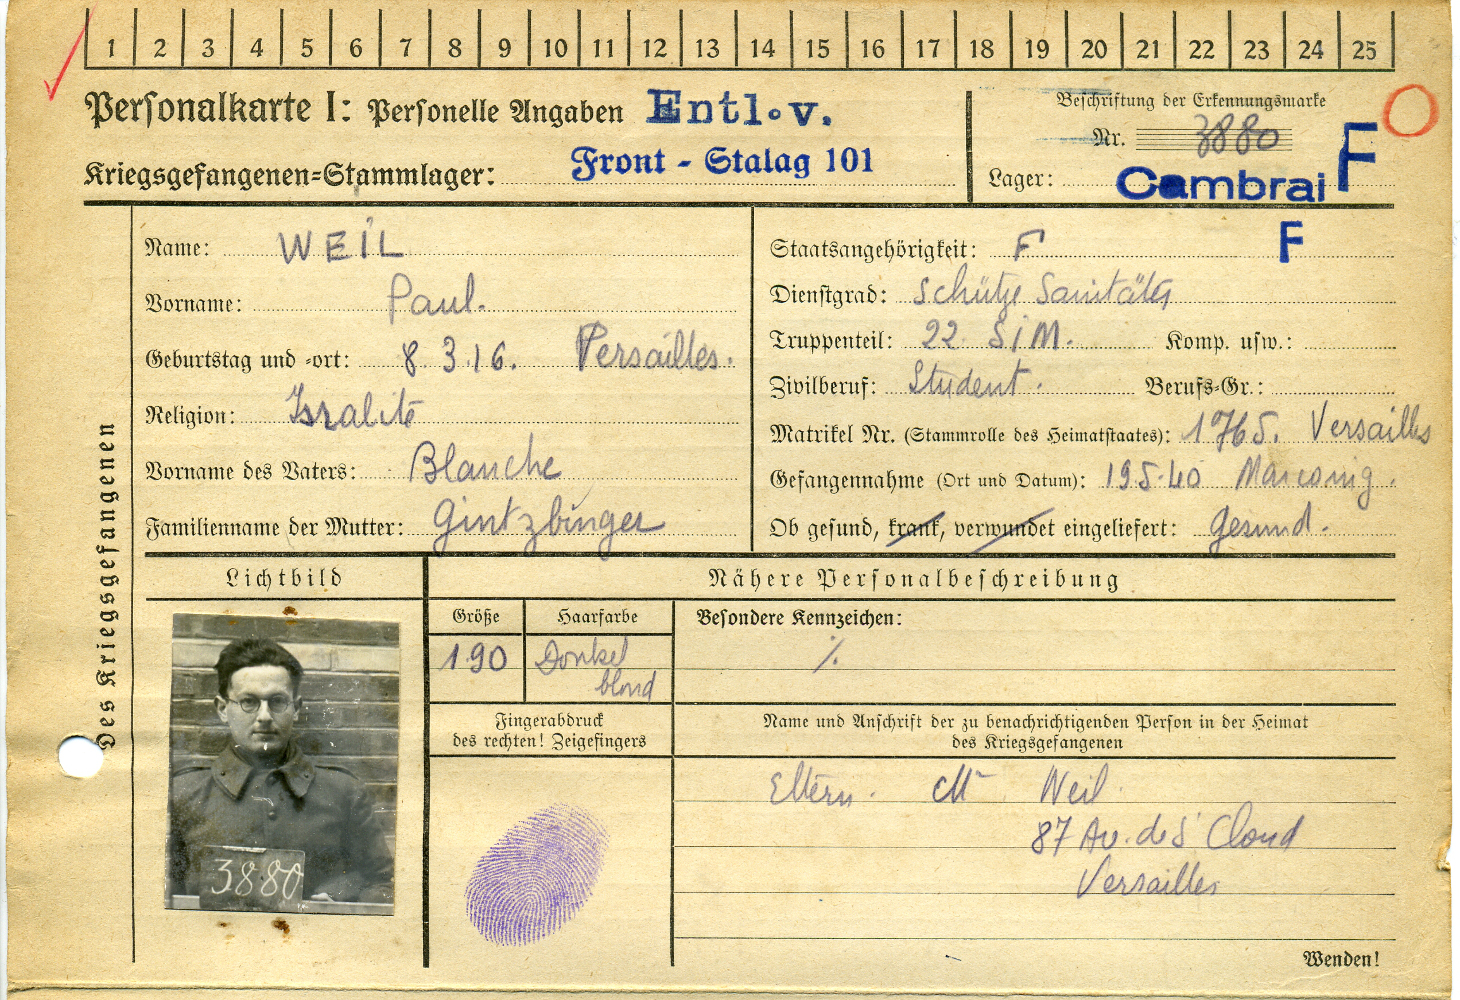 1 2 3 4 5 6 7 8 9 10 11 12 13 14 15 16 17 18 19 20 21 22 23 24 25
Personalkarte I: Personelle Angaben Entl. v.
Kriegsgefangenen-Stammlager: Front - Stalag 101
Beschriftung der Erkennungsmarke
Nr. 3880
Lager: Cambrai F
F
Des Kriegsgefangenen
Name: WEIL
Vorname: Paul.
Geburtstag und -ort: 8.3.16. Versailles.
Religion: Isralite
Vorname des Vaters: Blanche
Familienname der Mutter: Gintzbinger
Staatsangehörigkeit: F
Dienstgrad: Schütze Sanitäter
Truppenteil: 22 SIM. Komp. usw.:
Zivilberuf: Student. Berufs-Gr.:
Matrikel Nr. (Stammrolle des Heimatstaates): 1765. Versailles
Gefangennahme (Ort und Datum): 19 5.40 Marconig.
Ob gesund, krank, verwundet eingeliefert: gesund.
Lichtbild
3880
Nähere Personalbeschreibung
Größe Haarfarbe
1.90 Donkel
blond
Besondere Kennzeichen:
./.
Fingerabdruck
des rechten! Zeigefingers
Name und Anschrift der zu benachrichtigenden Person in der Heimat
des Kriegsgefangenen
Eltern. Mr Weil
87 Av. de St Cloud
Versailles
Wenden!